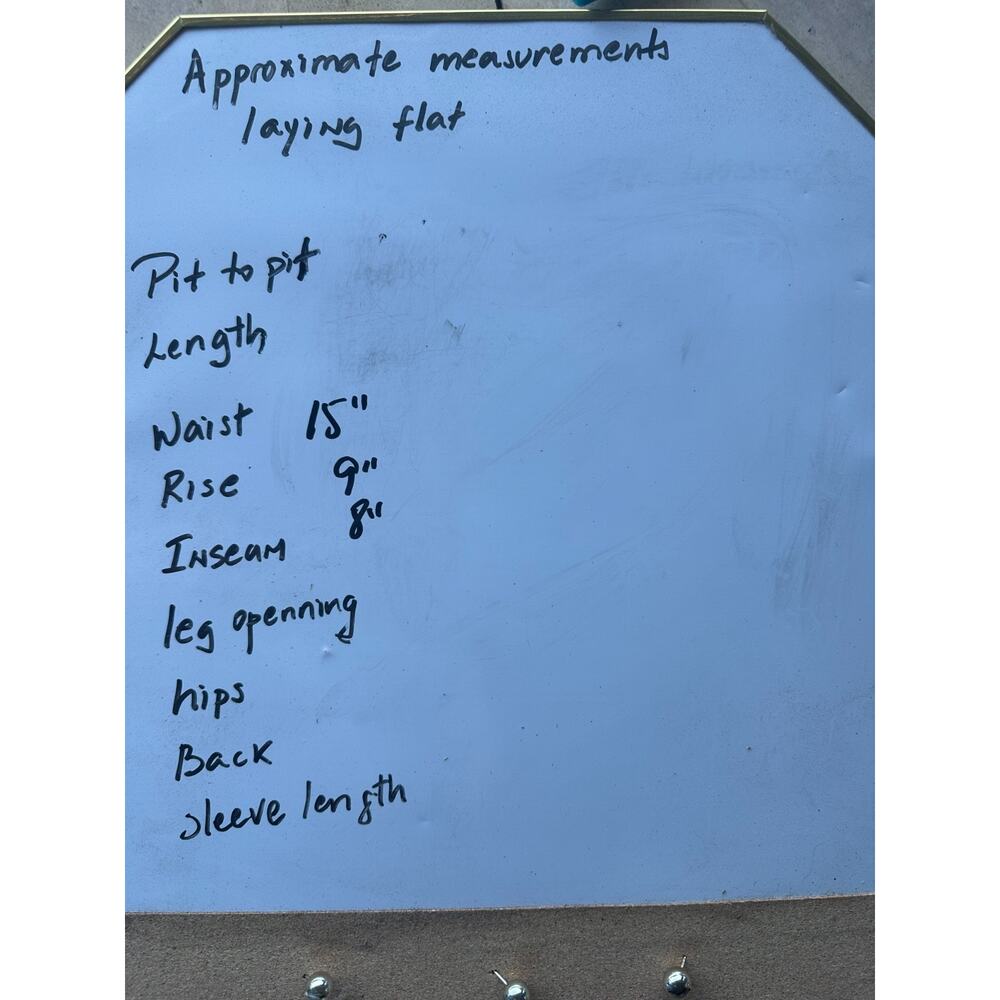 Approximate measurements
laying flat
Pit to pit
Length
Waist 15"
Rise 9"
Inseam 8"
leg openning
hips
Back
sleeve length